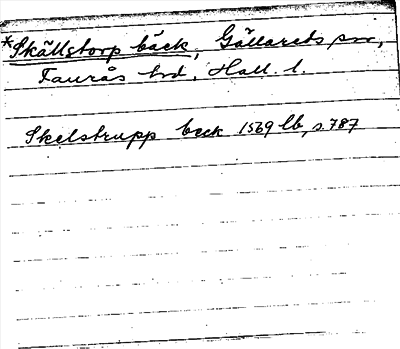 *Skällstorp bäck, Gällareds sn,
Faurås hd, Hall. l.
Skelstrupp beck 1569 lb, s. 787